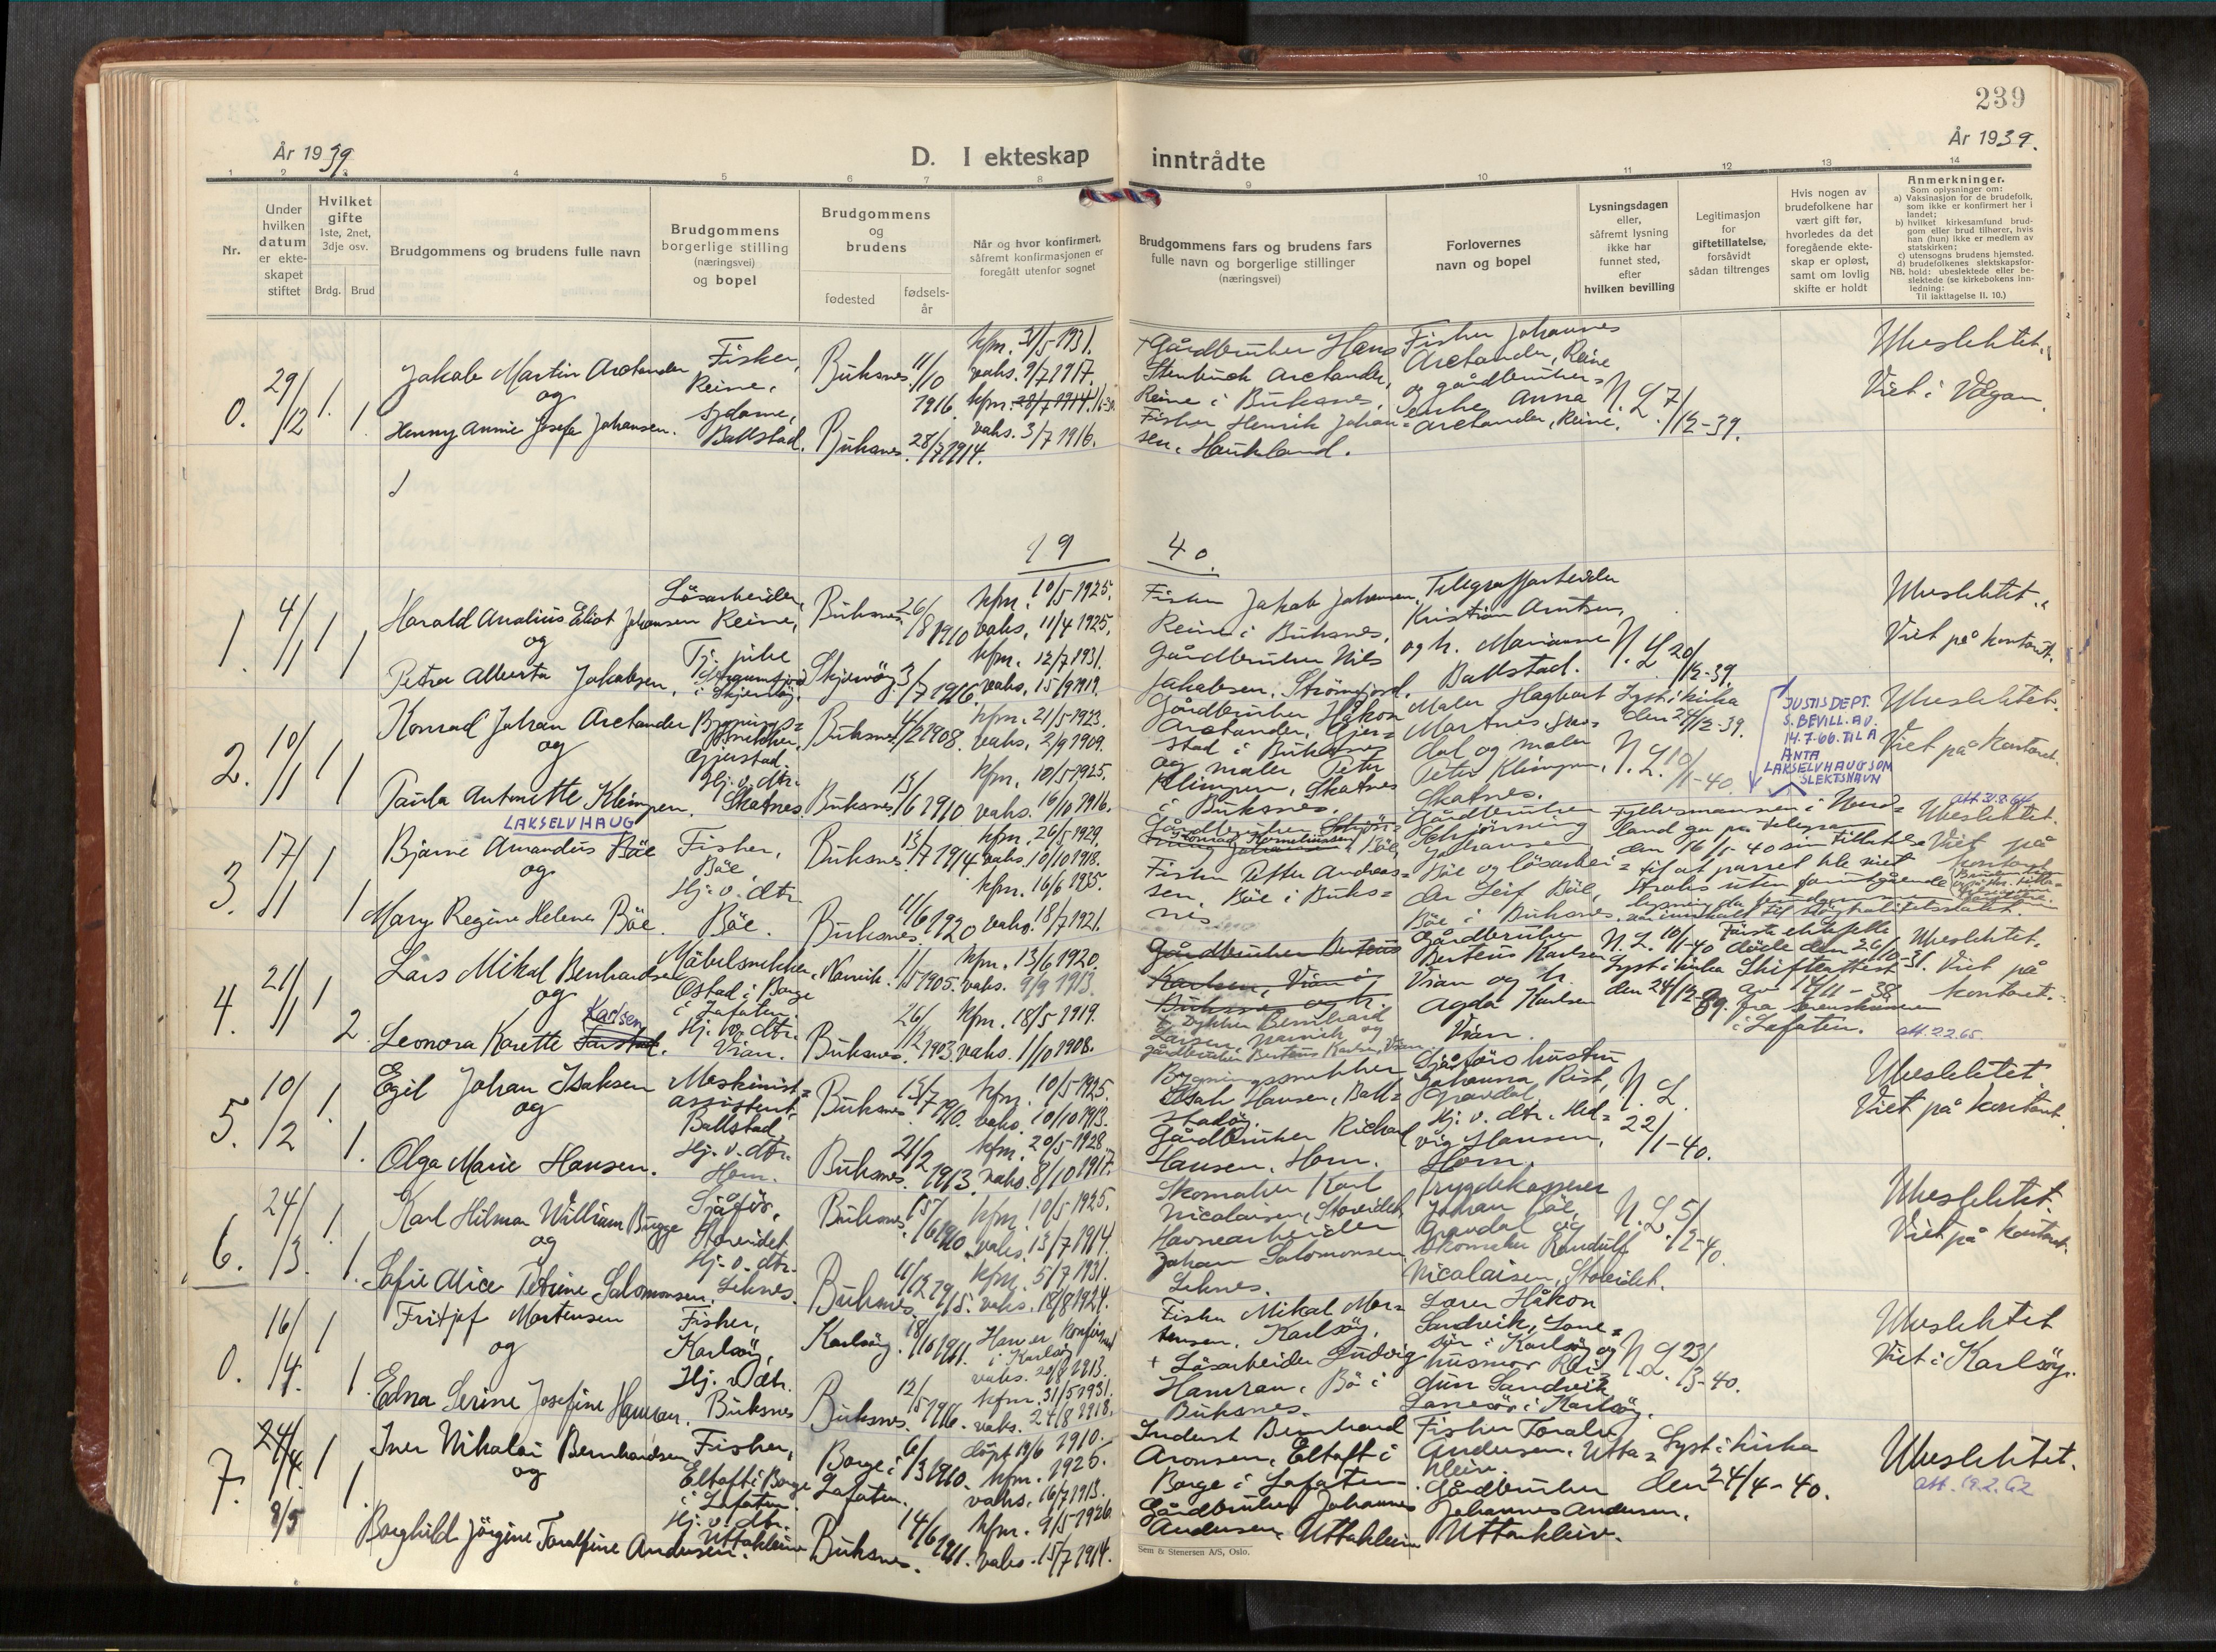 239
År 1939.
År 1939.
D. I ekteskap inntrådte
1 2 3 4 5 6 7 8 9 10 11 12 13 14
Nr.
Under hvilken datum er ekteskapet stiftet
Hvilket gifte
1ste, 2net, 3dje osv.
Brdg. Brud
Brudgommens og brudens fulle navn
Brudgommens borgerlige stilling (næringsvei) og bopel
Brudgommens og brudens
fødested
fødselsår
Når og hvor konfirmert, såfremt konfirmasjonen er foregått utenfor sognet
Brudgommens fars og brudens fars fulle navn og borgerlige stillinger (næringsvei)
Forlovernes navn og bopel
Lysningsdagen eller, såfremt lysning ikke har funnet sted, efter hvilken bevilling
Legitimasjon for giftetillatelse, forsåvidt sådan tiltrenges
Hvis nogen av brudefolkene har vært gift før, hvorledes da det foregående ekteskap er opløst, samt om lovlig skifte er holdt
Anmerkninger.
Som oplysninger om:
a) Vaksinasjon for de brudefolk, som ikke er konfirmert her i landet;
b) hvilket kirkesamfund brudgom eller brud tilhører, hvis han (hun) ikke er medlem av statskirken;
c) utensogns brudens hjemsted.
d) brudefolkenes slektskapsforhold: ubeslektede eller beslektede (se kirkebokens innledning:
NB.
Til iakttagelse II. 10.)
0. 29/12 1. 1.
Jakob Martin Arctander
og
Henny Annie Josefa Johansen.
Fisker, Reine.
Ballstad.
Buksnes. 11/10 1916.
Buksnes. 28/7 1914.
kfm. 31/5 1931.
vaks. 9/7 1917.
vaks. 3/7 1916.
+ Gårdbruker Hans
Stenbuck Arctander,
Reine i Buksnes.
Fisker Henrik Johansen, Haukland.
Fisker Johannes
Arctander, Reine
og gårdbruker-
enke Anna
Arctander, Reine.
N. L. 7/12-39.
Ubeslektet.
Viet i Vågan.
1940.
1. 4/1 1 1
Harald Analius Eliot Johansen
og
Petra Alberta Jakobsen.
Løsarbeider, Reine,
Tj. pike
i Skjervøy.
Buksnes. 26/8 1910
Skjervøy. 3/7 1916.
kfm. 10/5 1925.
vaks. 11/4 1925.
kfm. 12/7 1931.
vaks. 15/9 1919.
Fisker Jakob Johansen,
Reine i Buksnes.
Gårdbruker Nils
Jakobsen, Strømfjord.
Telegrafarbeider
Kristian Arntsen,
og h. Marianne
Ballstad.
N. L. 20/12-39.
Ubeslektet.
Viet på kontoret.
2. 10/1 1 1
Konrad Johan Arctander
og
Paula Antonette Klimpen.
Bygnings-
snekker,
Gjerstad.
Hj. v. dtr.
Skatnes.
Buksnes. 4/2 1908.
Buksnes. 13/6 1910
kfm. 21/5 1923.
vaks. 2/9 1909.
kfm. 10/5 1925.
vaks. 16/10 1916.
Gårdbruker Håkon
Arctander, Gjer-
stad i Buksnes
og maler Peter
Klimpen, Skatnes
i Buksnes.
Maler Hagbart
Martnes, Grav-
dal og maler
Peter Klimpen,
Skatnes.
Lyst i kirka
den 24/12-39.
N. L. 10/1-40.
JUSTIS DEPT.
S. BEVILL. AV.
14.7.66. TIL Å
ANTA
LAKSELVHAUG SOM
SLEKTSNAVN
Ubeslektet.
Viet på kontoret.
3. 17/1 1 1
LAKSELVHAUG
Bjarne Amandus Bøe
og
Mary Regine Helene Bøe.
Fisker,
Bøe,
Hj. v. dtr.
Bøe.
Buksnes. 13/7 1914.
Buksnes. 11/6 1920
kfm. 26/5 1929.
vaks. 10/10 1918.
kfm. 16/6 1935.
vaks. 18/7 1921.
Fisker Peter Andreas-
sen, Bøe i Buks-
nes.
Gårdbruker
Johansen
Bøe og løsarbei-
der Leif Bøe,
Bøe i Buksnes.
Fylkesmannen i Nord-
land ga pr. telegram
den 16/1-40 sin tillatelse
til at parret ble viet
straks uten forutgående
lysning
Ubeslektet.
Viet på
kontoret
4. 21/1 1 2
Lars Mikal Benhardsen
og
Karlsen
Leonora Karette
Møbelsnekker,
Ostad i Borge
i Lofoten.
Hj. v. dtr.
Vian.
Narvik. 1/5 1905.
Buksnes. 26/12 1903.
kfm. 13/6 1920.
vaks. 9/9 1913.
kfm. 18/5 1919.
vaks. 1/10 1908.
Gårdbruker Berteus
Karlsen, Vian i
Buksnes og h.
Larsen, Narvik og
gårdbruker Berteus Karlsen, Vian.
Gårdbruker
Berteus Karlsen
Vian og h.
Agda Karlsen
Vian.
N. L. 10/1-40
Lyst i kirka
den 24/12-39.
Første ektefelle
døde den 26/10-31.
Skifteattest
av 14/11-38
fra Sorenskriveren
i Lofoten.
Ubeslektet.
Viet på
kontoret.
att. 2.2.65.
5. 10/2 1. 1.
Egil Johan Isaksen
og
Olga Marie Hansen.
Maskinist-
assistent,
Ballstad
Hj. v. dtr.
Horn.
Buksnes. 13/7 1910.
Buksnes. 21/2 1913.
kfm. 10/5 1925.
vaks. 10/10 1913.
kfm. 20/5 1928.
vaks. 8/10 1917.
Bygningssnekker
Isak Hansen, Ball-
stadøy.
Gårdbruker Richard
Hansen, Horn.
Sjåførs hustru
Johanna Rist,
Gravdal,
Hj. v. dtr. Hed-
vig Hansen,
Horn.
N. L.
22/1-40.
Ubeslektet.
Viet på kontoret.
6. 24/3. 1. 1.
Karl Hilmar William Bugge
og
Sofie Alice Petrine Salomonsen.
Sjåfør,
Storeidet
Hj. v. dtr.
Leknes.
Buksnes. 15/6 1910
Buksnes. 11/12 1915.
kfm. 10/5 1925.
vaks. 13/7 1914.
kfm. 5/7 1931.
vaks. 18/8 1924.
Skomaker Karl
Nicolaisen, Storeidet
Havnearbeider
Johan Salomonsen
Leknes.
Trygdekasserer
Johan Bøe,
Gravdal og
Skomaker Randulf
Nicolaisen, Storeidet.
N. L. 5/2-40.
Ubeslektet.
Viet på kontoret.
0. 16/4. 1 1.
Fritjof Mortensen
og
Edna Serine Josefine Hamran.
Fisker,
Karlsøy,
Hj. v. dtr.
Buksnes
Karlsøy. 18/10 1911.
Buksnes. 12/5 1916.
Han er konfirmert
i Karlsøy
vaks. 20/8 1913.
kfm. 31/5 1931.
vaks. 24/8 1918.
Fisker Mikal Mor-
tensen, Karlsøy.
+ Løsarbeider Ludvig
Hamran, Bø i
Buksnes.
Lærer Håkon
Sandvik, Lane-
sør i Karlsøy og
husmor Rei-
dun Sandvik
Lanesør i Karlsøy.
N. L. 23/3-40.
Ubeslektet
Viet i Karlsøy.
7. 24/4. 8/5 1 1.
Iver Nikolai Bernhardsen
og
Borghild Jørgine Toralfine Andersen.
Fisker,
Eltoft i Borge
i Lofoten.
Hj. v. dtr.
Uttakleiv
Borge i Lofoten. 6/3 1910.
Buksnes. 14/6 1911.
døpt 19/6 1910.
kfm. 1925.
vaks. 16/7 1913.
kfm. 9/5 1926.
vaks. 15/7 1914.
Inderst Bernhard
Aronsen, Eltoft i
Borge i Lofoten.
Gårdbruker Johannes
Andersen, Uttakleiv
Fisker Toralv
Andersen, Utta-
kleiv.
Gårdbruker
Johannes Andersen,
Uttakleiv.
Lyst i kirka
den 24/4-40.
Ubeslektet.
att. 19.2.62
Sem & Stenersen A/S, Oslo.